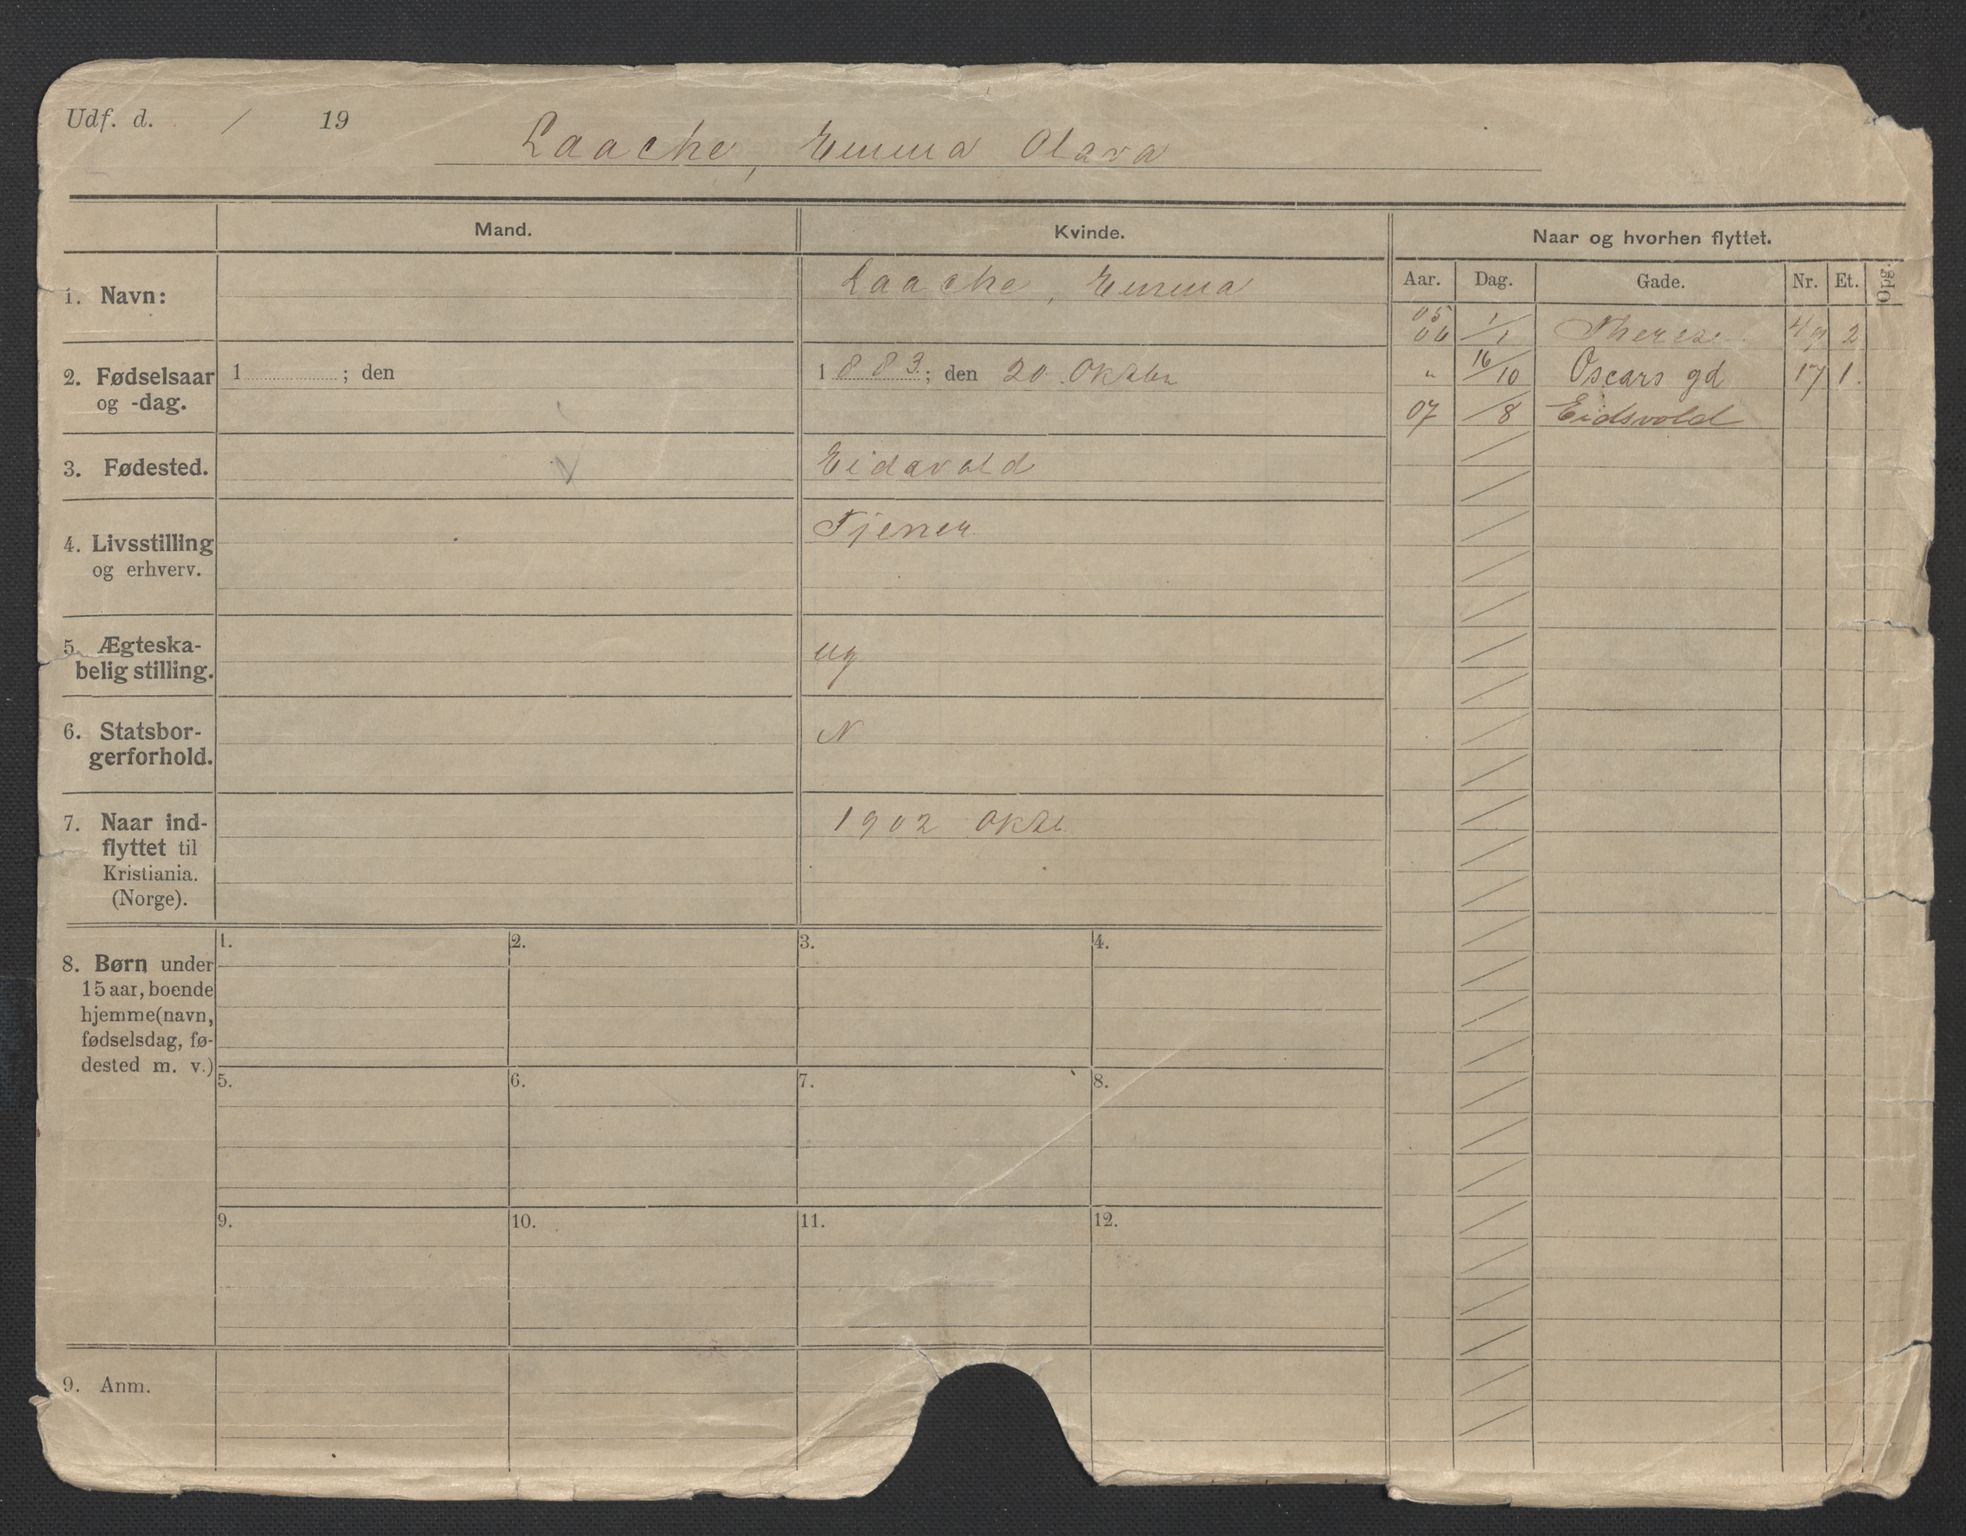 Udf. d. / 19
Laache, Emma Olava
Mand.
Kvinde.
Naar og hvorhen flyttet.
Aar. Dag. Gade. Nr. Et. Opg.
1. Navn:
Laache, Emma
05
06 1/1 Therese. 49 2
" 16/10 Oscars gd 17 1.
07 /8 Eidsvold
2. Fødselsaar
og -dag.
1 ; den
1883; den 20 Oktbr
3. Fødested.
Eidsvold
4. Livsstilling
og erhverv.
Tjener
5. Ægteska-
belig stilling.
ug
6. Statsbor-
gerforhold.
N
7. Naar ind-
flyttet til
Kristiania.
(Norge).
1902 Oktb
8. Børn under
15 aar, boende
hjemme (navn,
fødselsdag, fø-
dested m. v.)
1. 2. 3. 4.
5. 6. 7. 8.
9. 10. 11. 12.
9. Anm.